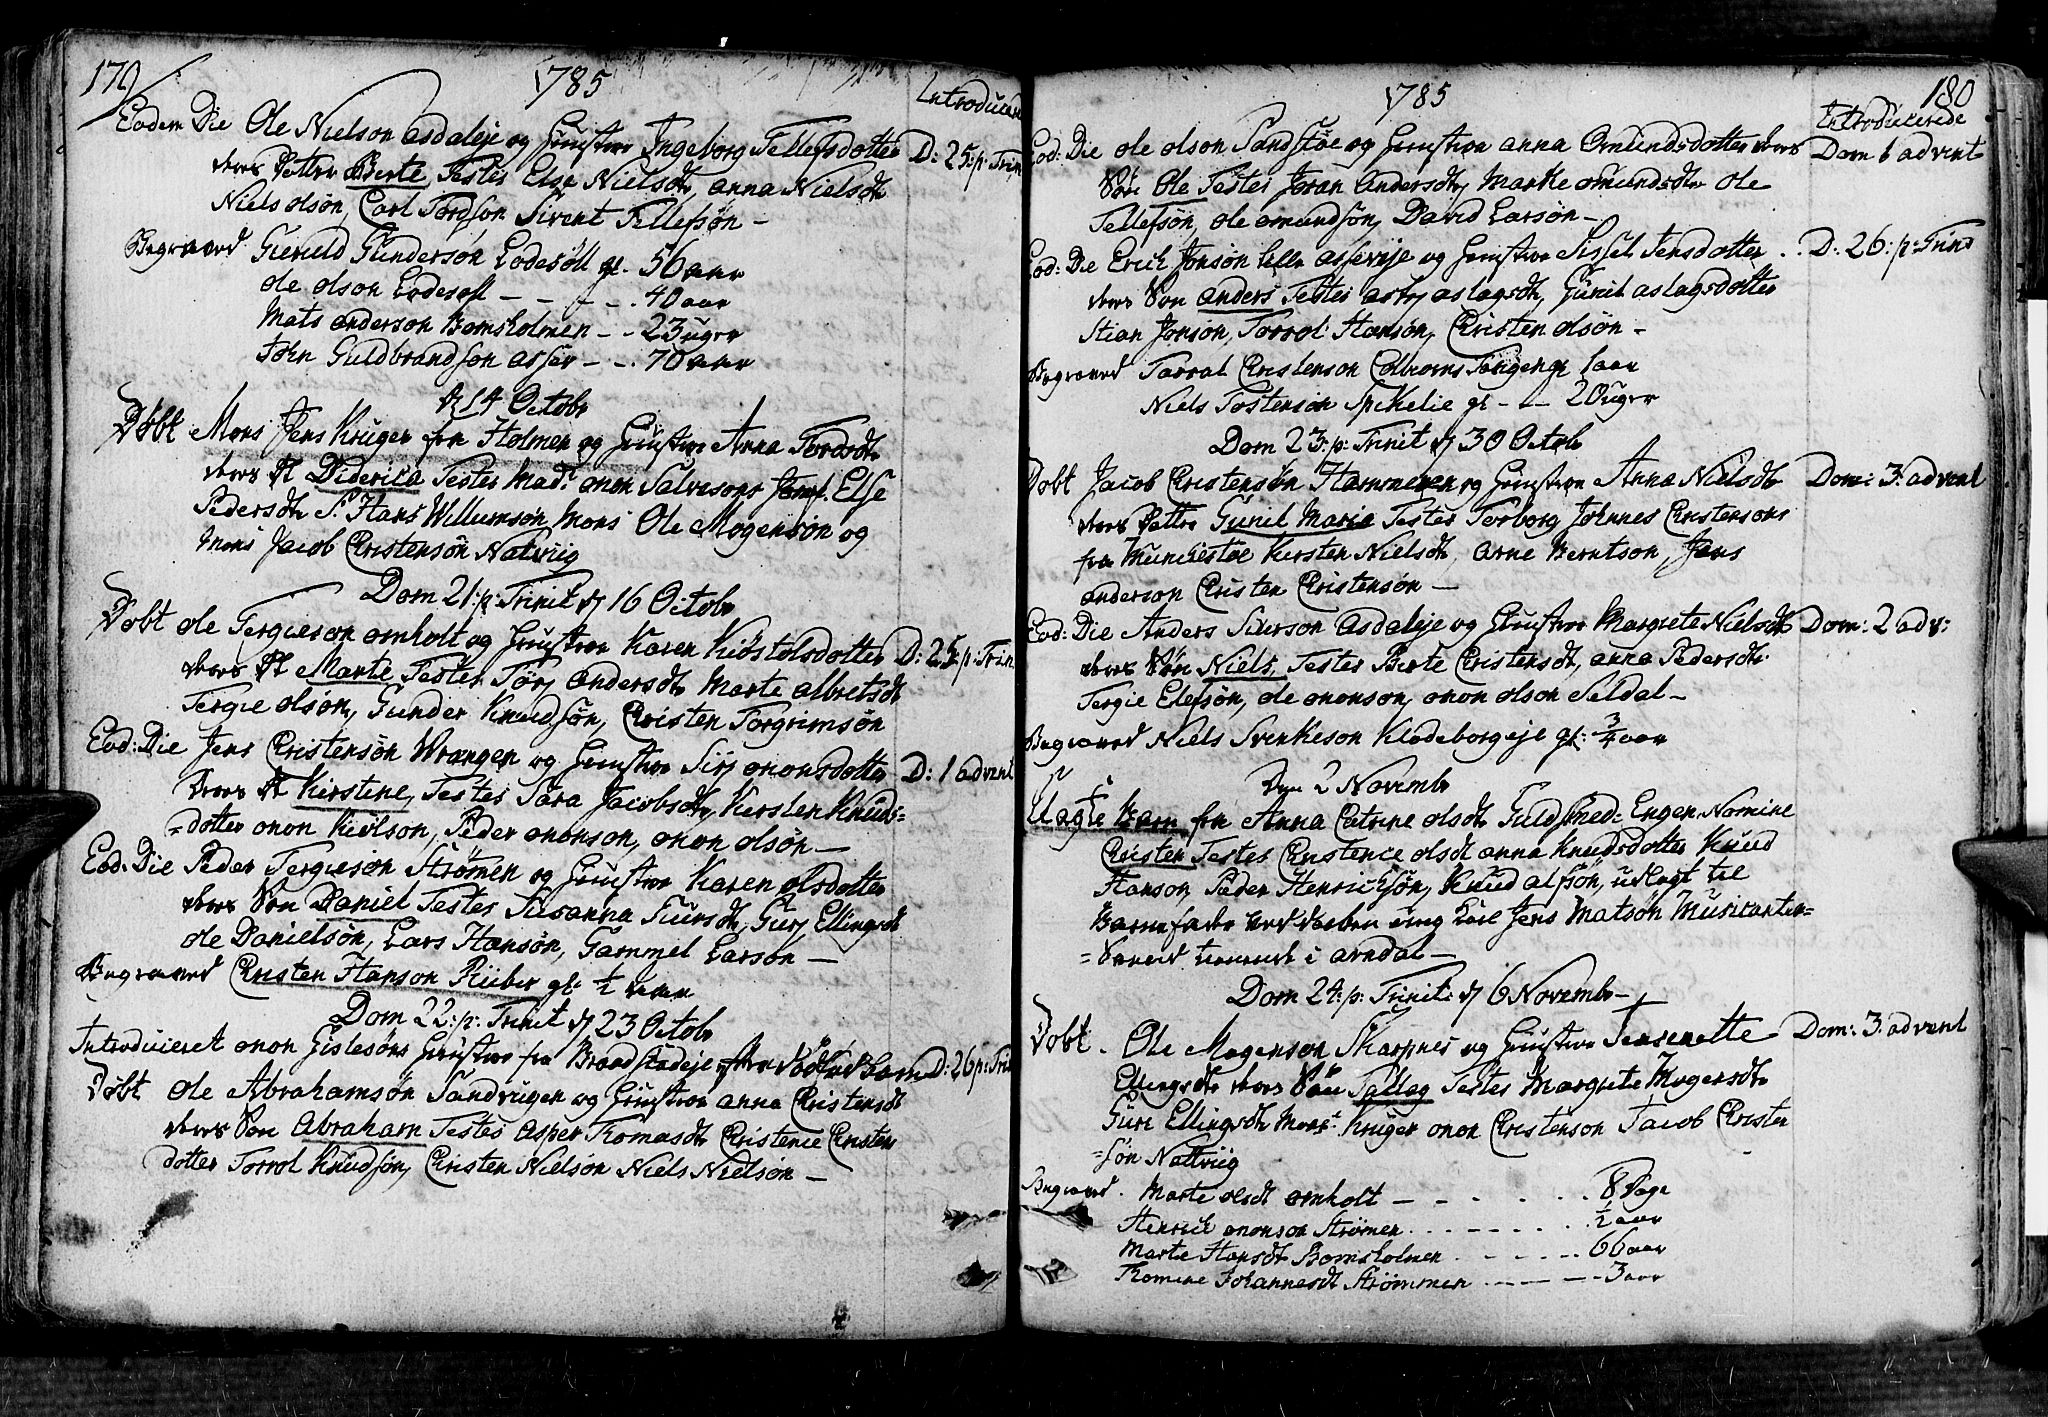 179
1785
Introducerede
Eodem Die Ole Nielson Asdaleje og Hustroe Ingeborg Tellefsdotter D: 25:p: Trin
deres Datter Berte Testes Else Nielsdt, Anna Nielsdt
Niels Olsøn, Carl Tordsøn Sivert Tellefsøn –
Begraved Gieruld Gundersøn Lodesøll gl. 56 aar
Ole Olson Lodesøll – – – . 40 aar
Mats Anderson Bomsholmen – . 23 uger
John Guldbrandson Asser – – . 70 aar
D 14 Octobr
Døbt Mons Jens Krüger fra Holmen og Hustroe Anna Tordsdt
deres D Diderica Testes Mad: Onon Salvesons Jomf. Else
Pedersdt S: Hans Willumsøn, Mons Ole Mogensøn og
Mons Jacob Christensøn Natviig
Dom 21:p: Trinit D 16 Octobr
Døbt Ole Tergieson Omholt og Hustroe Karen Kiøstolsdotter D: 25:p: Trin
deres D Marte Testes Torj Andersdt Marte Albretsdt
Tergie Olsøn, Gunder Knudsøn, Christen Torgrimsøn
Eod: Die Jens Christensøn Wrangen og Hustroe Sirj Ononsdotter D: 1 advent
deres D Kirstene, Testes Sara Jacobsdt, Kersten Knuds=
=dotter Onon Kiølson, Peder Ononson, Onon Olsøn –
Eod: Die Peder Tergiesøn Strømen og Hustroe Karen Olsdotter
deres Søn Daniel Testes Susanna Siursdt, Gurj Ellingsdt
Ole Danielsøn, Lars Hansøn, Gammel Larsøn –
Begraved Christen Hanson Rüber gl: ½ aar
Dom 22:p: Trinit D 23 Octobr
Introduceret Onon Gislesøns Hustroe fra Braadstadeje Dødfød barn D: 26 p: Trin
Døbt Ole Abrahamsøn Sandvigen og Hustroe Anna Christensdt
deres Søn Abraham Testes Asper Thomasdt Christence Christens
dotter Torrol Knudsøn, Christen Nielsøn Niels Nielsøn –
180
1785
Introducerede
Eod: Die Ole Olson Sandstøe og Hustroe Anna Omundsdotter deres Dom 1 advent
Søn Ole Testes Joran Andersdt, Marthe Omundsdt Ole
Tellefsøn, Ole Omundsøn, David Larsøn –
Eod: Die Erich Jonsøn Lille Assevije og Hustroe Sissel Jensdotter . . D: 26:p: Trin
deres Søn Anders Testes Astrj Aslagsdt, Gunil Aslagsdotter
Stian Jonsøn, Torrol Hansøn, Christen Olsøn –
Begraved Torral Christenson Tangen gl 1 aar
Niels Tostensøn Spikelie gl – – 20 uger
Dom 23:p: Trinit D 30 Octobr
Døbt Jacob Christensøn Hammeren og Hustroe Anna Nielsdt Dom: 3 advent
deres Datter Gunil Maria Testes Torborg Johnnes Christensons
fra Kersten Nielsdt, Arne Berntson, Jens
Anderson Christen Christensøn –
Eod: Die Anders Siurson Asdaleje og Hustroe Margrete Nielsdt Dom: 2 adv:
deres Søn Niels, Testes Berte Christensdt, Anna Pedersdt
Tergie Elefsøn, Ole Ononson, Onon Olson Seldal –
Begraved Niels Svenkeson Klodeborgeje gl: ¾ aar
Den 2 Novembr
Uægte Barn fra Anna Catrine Olsdt Guldsmed: Engen, Nomine
Christen Testes Christence Olsdt Anna Knudsdotter Knud
Hanson, Peder Henrichsøn, Knud Alfsøn, udlagt til
Barnefader ved daaben ung Karl Jens Matsøn Musicanter=
=Svend i Arndal –
Dom 24:p: Trinit: D 6 Novembr –
Døbt . Ole Mogenson Skarpnes og Hustroe Jensenette Dom: 3 advent
Ellingsdt deres Søn Tallag Testes Margrete Mogensdt
Guri Ellingsdt Mons: Krüger Onon Christenson Jacob Christen
=søn Nattviig
Begraved . Marte Olsdt Omholt – . . . . . 8 Dage
Henrich Ononson Strømen . . . . . . ½ aar
Marte Hansdt Bomsholmen . . . . . . 66 aar
Thomine Johannesdt Strømmen – – – – 3 aar